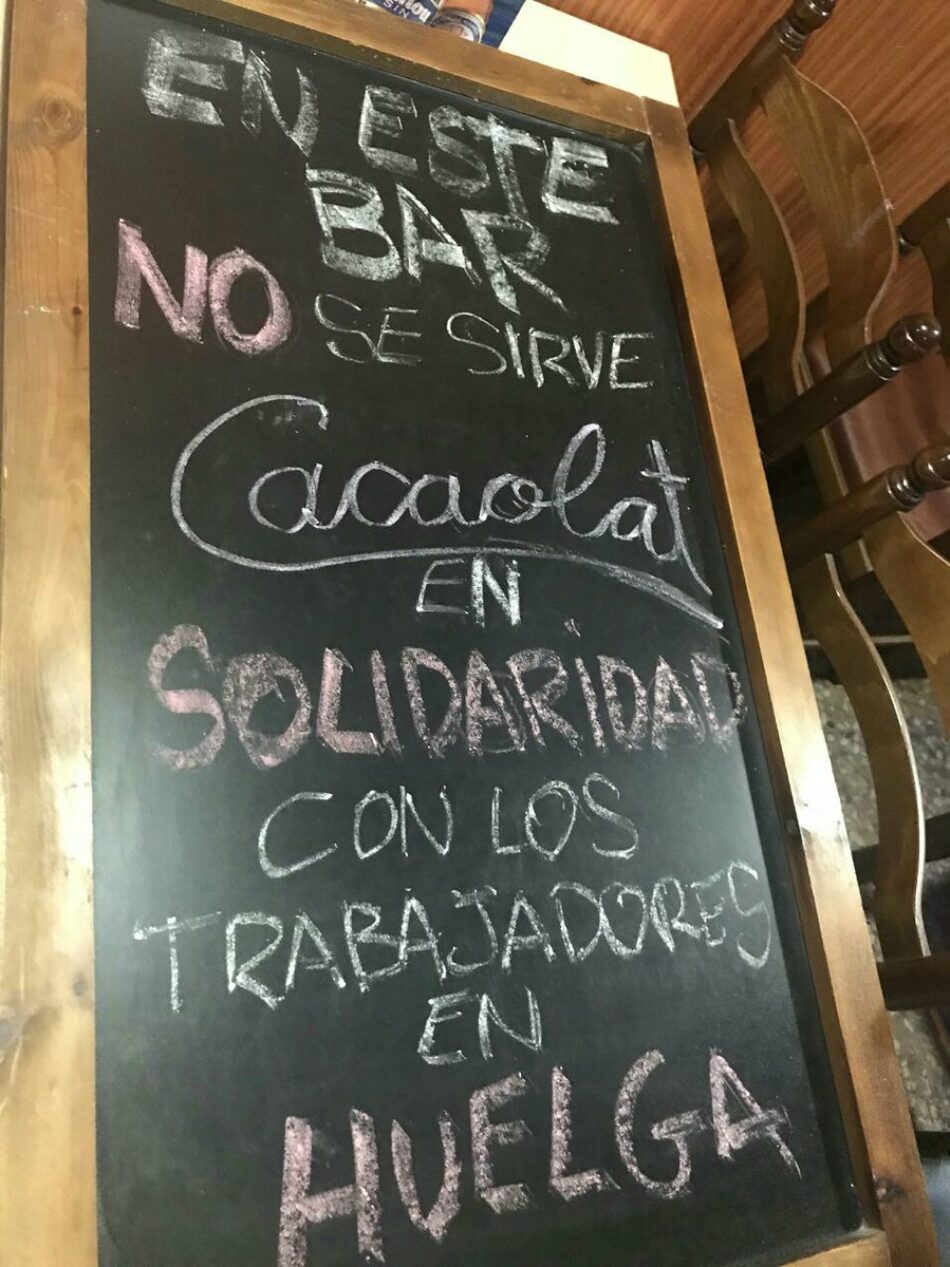 EN ESTE
BAR
NO SE SIRVE
Cacaolat
EN
SOLIDARIDAD
CON LOS
TRABAJADORES
EN
HUELGA